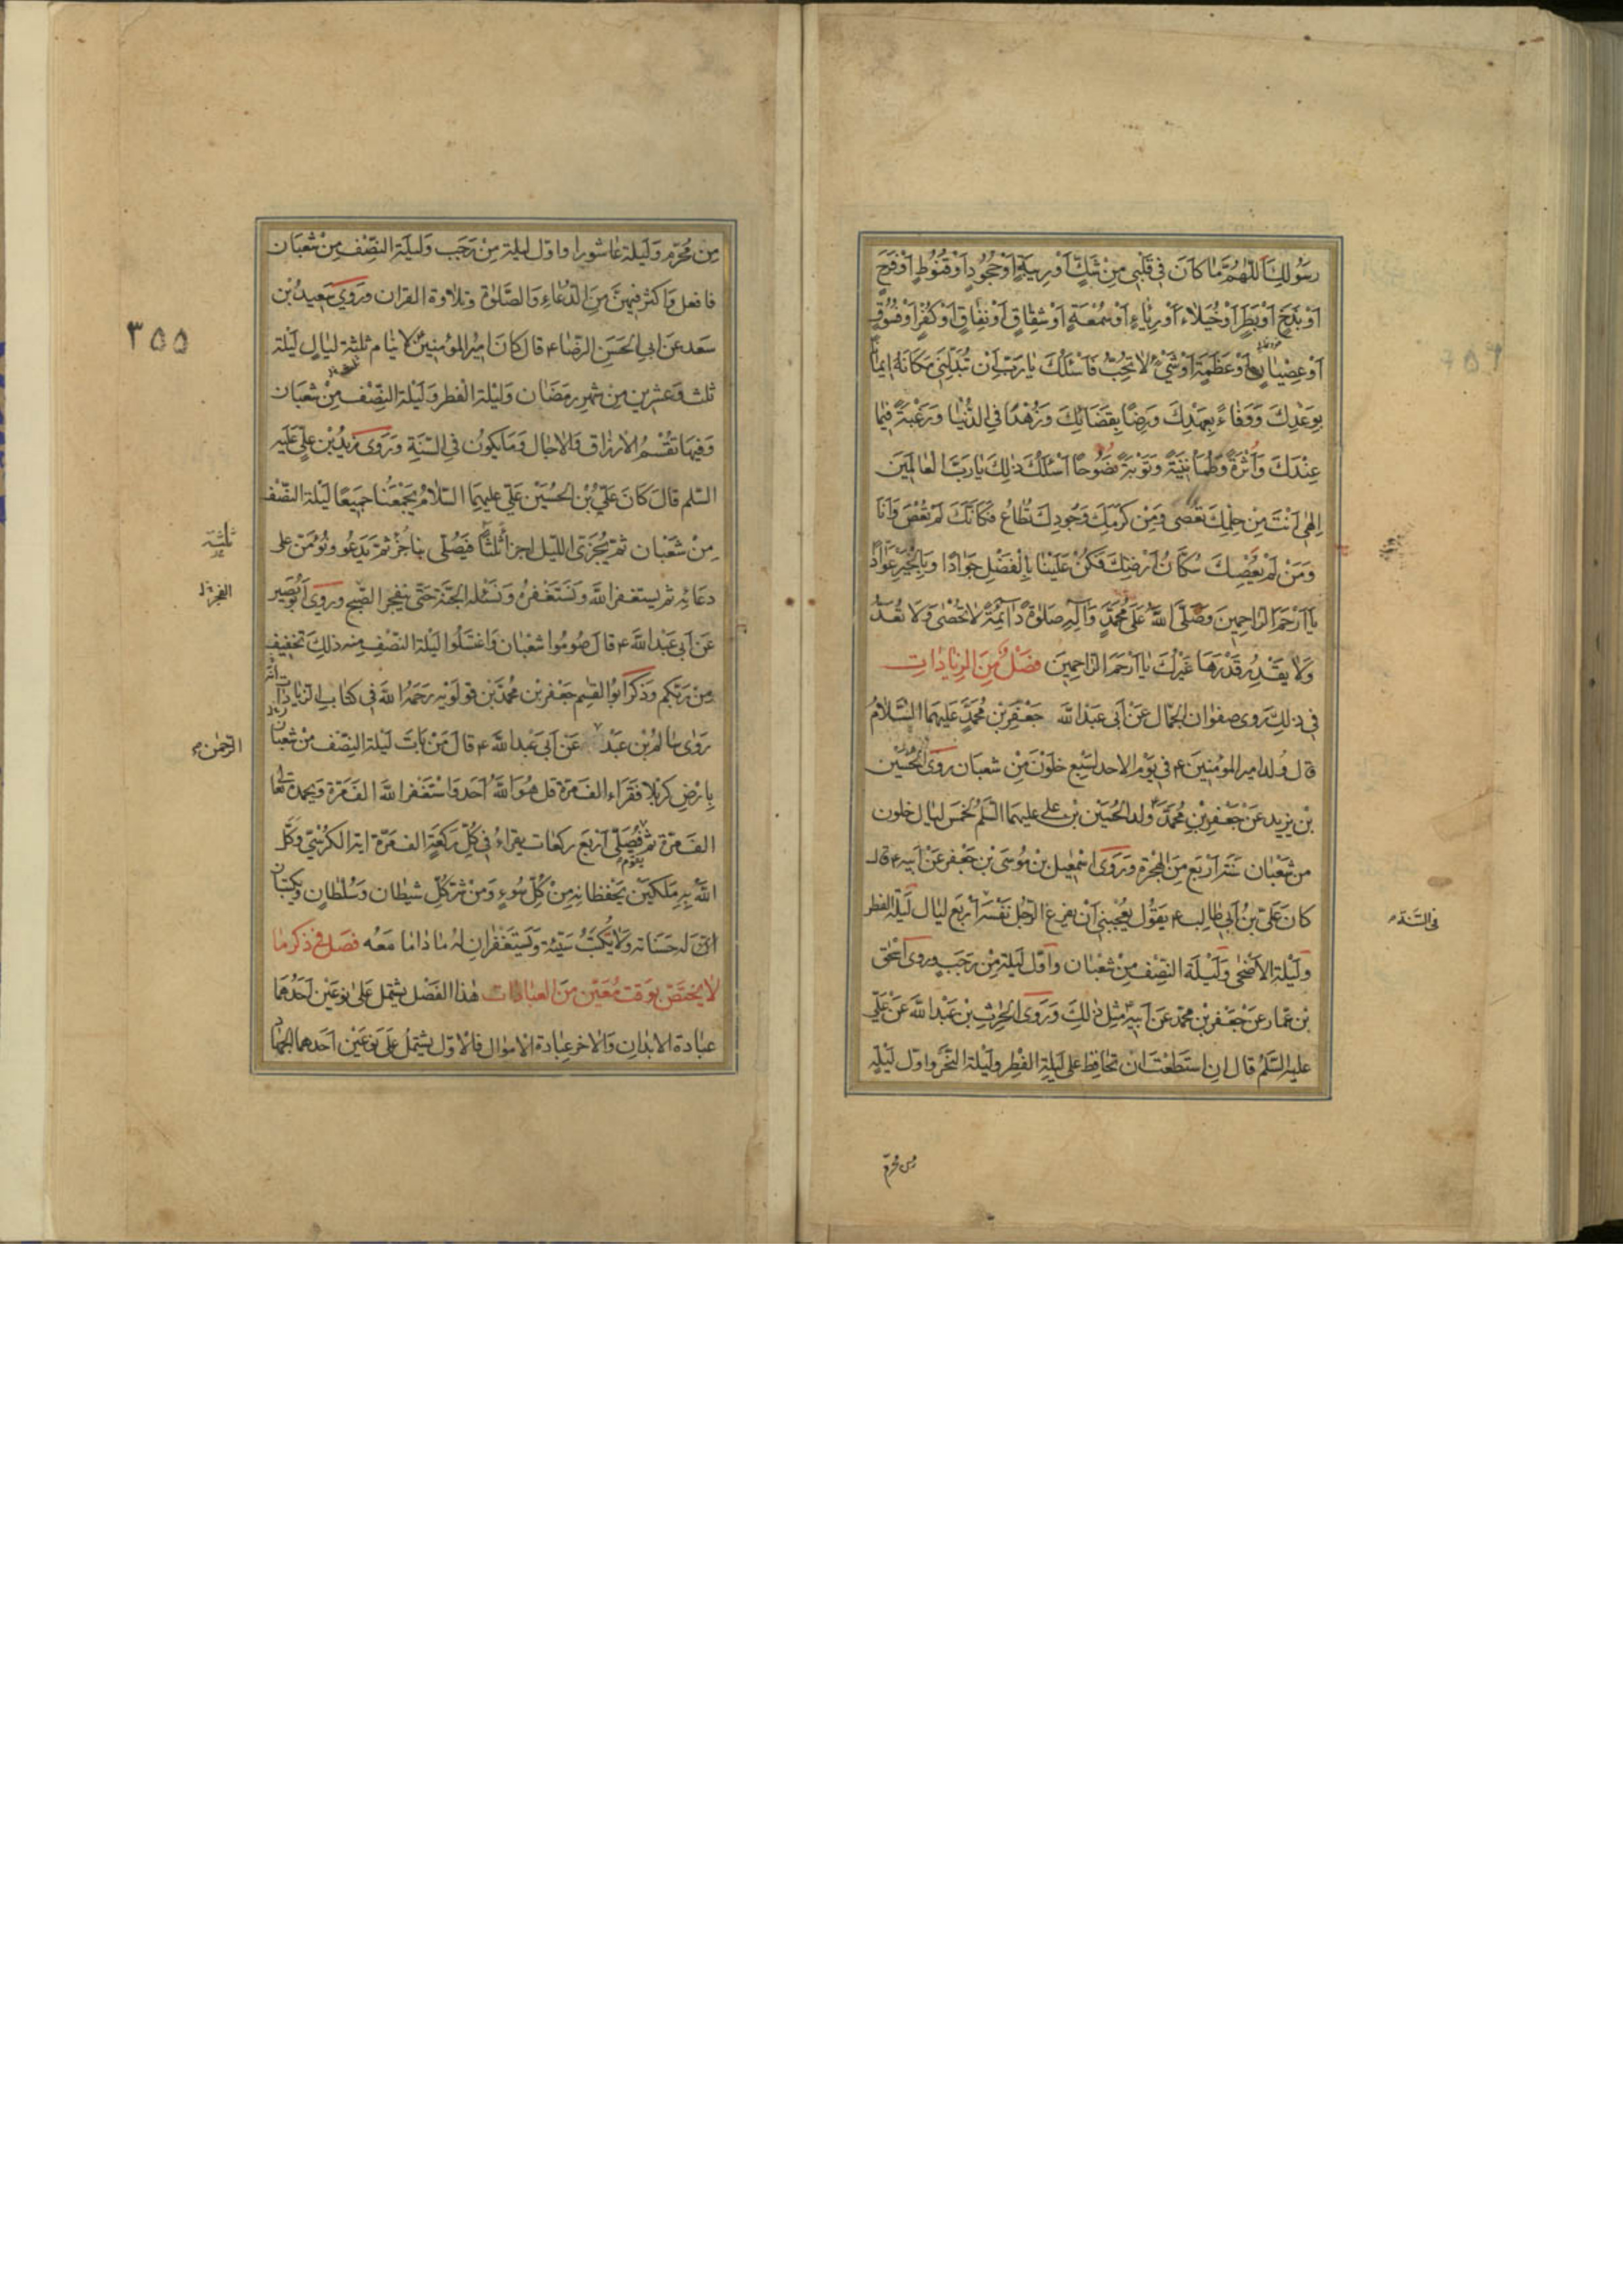 رَسُولِكَ اَللّهُمَّ مَا كَانَ فِي قَلْبِي مِنْ شَكٍّ اَوْ رِيبَةٍ اَوْ جُحُودٍ اَوْ قُنُوطٍ اَوْ فَرَحٍ
اَوْ بَذَخٍ اَوْ بَطَرٍ اَوْ خُيَلَاءَ اَوْ رِيَاءٍ اَوْ سُمْعَةٍ اَوْ شِقَاقٍ اَوْ نِفَاقٍ اَوْ كُفْرٍ اَوْ فُسُوقٍ
اَوْ عِصْيَانٍ اَوْ عَظَمَةٍ اَوْ شَيْءٍ لَا تُحِبُّ فَاَسْئَلُكَ يَا رَبِّ اَنْ تُبَدِّلَنِي مَكَانَهُ اِيمَانًا
بِوَعْدِكَ وَوَفَاءً بِعَهْدِكَ وَرِضًا بِقَضَائِكَ وَزُهْدًا فِي الدُّنْيَا وَرَغْبَةً فِيمَا
عِنْدَكَ وَاَثَرَةً وَطُمَأْنِينَةً وَتَوْبَةً نَصُوحًا اَسْئَلُكَ ذلِكَ يَا رَبَّ الْعَالَمِينَ
اِلهِي اَنْتَ مِنْ حِلْمِكَ تُعْصَى وَمِنْ كَرَمِكَ وَجُودِكَ تُطَاعُ فَكَاَنَّكَ لَمْ تُعْصَ وَاَنَا
وَمَنْ لَمْ يَعْصِكَ سُكَّانُ اَرْضِكَ فَكُنْ عَلَيْنَا بِالْفَضْلِ جَوَادًا وَبِالْخَيْرِ عَوَّادًا
يَا اَرْحَمَ الرَّاحِمِينَ وَصَلَّى اللهُ عَلَى مُحَمَّدٍ وَآلِهِ صَلوةً دَائِمَةً لَا تُحْصَى وَلَا تُعَدُّ
وَلَا يَقْدِرُ قَدْرَهَا غَيْرُكَ يَا اَرْحَمَ الرَّاحِمِينَ فَصْلٌ مِنَ الزِّيَادَاتِ
فِي ذلِكَ رَوى صفوان الجمّال عَنْ اَبي عَبْدِ اللهِ جَعْفَرِ بْنِ مُحَمَّدٍ عَلَيْهِمَا السَّلَامُ
قال وُلد امير المؤمنين ع في يوم الاحد لسبع خلون مِنْ شعبان رَوَى الحُسَين
بْن يزيد عَنْ جَعْفَر بْنِ مُحَمَّد وُلد الحُسَيْن بْن علي عليهما السّلم لخمس ليال خلون
من شعبان سَنَة اَرْبَع مِنَ الهِجْرة وَرَوَى اسْمعيل بْن مُوسى بْن جَعْفَر عَنْ اَبيه ع قال
كان عَلِيّ بْنُ اَبي طالب ع يَقُول يُعْجِبُني اَنْ يفرغ الرّجُل نَفْسَه اَرْبَع ليال لَيْلَة الفطر
في السّنة
ولَيْلَة الاَضْحى وَلَيْلَة النِّصْف مِنْ شَعْبان وَاَوّل لَيْلَة مِنْ رَجَب وروى اسحق
بْن عمّار عَنْ جَعْفَر بْن محمّد عَنْ اَبيه مِثل ذلِكَ وَرَوَى الحرث بْن عَبْد الله عَنْ عَلِيّ
عليه السّلم قال ان استطعتَ ان تحافظ على لَيْلَة الفِطر ولَيْلة النَّحر واوّل لَيْلة
من محرّم
٣٥٥
مِن مُحرّم وَلَيلة عاشورا واوّل ليلة مِنْ رَجَب وَلَيلَة النِّصْف مِنْ شَعْبَان
فافعل وَاكثر فيهنّ مِنَ الدُّعَاء وَالصَّلوة وتلاوة القران وَرَوى سَعِيدُ بْن
سَعد عن ابي الحَسَن الرضا ع قال كَانَ اميْر المؤمنين لا ينَام ثلثة ليالٍ لَيْلَة
ثلث وَعشرين مِنْ شهر رَمَضَان وَلَيْلة الفطر وَلَيْلة النِّصْف مِنْ شَعبَان
وَفِيهَا تُقْسَمُ الارزاق وَالاجال وَمَا يكونُ في السَّنَة وَرَوى زَيدُ بْن عَلِيّ عَلَيْه
السّلم قالَ كَانَ عَلِيّ بْن الحُسَيْن عَلَيهِمَا السّلامُ يَجْمَعُنا جَميعًا لَيْلة النِّصْف
مِنْ شَعْبَان ثمّ يُجَزّئ الليل اجزاءً ثلثا فَيُصَلّي بنا جُزءً ثمّ يَدعُو وَنُؤمّن على
ثلثة
دعائه ثم يستغفر الله وَنَسْتَغْفِرُه وَنَسْئله الجَنّة حَتّى ينفجر الصّبح وروى اَبُو بَصِير
الفجر
عَنْ اَبي عَبْد الله ع قال صُومُوا شعْبان وَاغتَسِلُوا لَيْلة النّصْف منه ذلِكَ تخفيف
مِنْ رَبّكم وَذَكَر اَبُو القسِم جَعْفَر بْن محُمّد بْن قولويه رَحِمَه الله في كتاب الزيادات
رَوى سَالِمُ بْن عَبْد عَنْ اَبي عَبْد الله ع قال مَنْ بَاتَ لَيْلة النِّصْف مِنْ شعبان
الرّحمن
بِارْضِ كربلا فَقَرَاء الف مَرّة قل هُوَ اللهُ اَحَد وَاسْتَغْفَر الله الف مَرّة وَيحمده تعالى
الف مَرّة ثمّ يَقُوم فَيُصَلّي اَرْبَع ركعات يقراء في كُلّ رَكعَة الف مَرّة اية الكرسِيّ وَكّل
اللهُ بِه مَلَكَيْن يَحْفظانه مِنْ كُلّ سُوءٍ وَمِنْ شَرّ كُلّ شيطان وَسُلْطان وَيكتبان
لَهُ حَسَناته وَلا يُكتَبُ سَيّئة وَيَسْتَغْفِرانِ لهُ مَا دَاما مَعَه فصَل في ذكر ما
لا يختَصّ بوَقت مُعَيّن مِنَ العبَادات هذا الفَصل يشتمل عَلى نوعَيْن اَحَدُهمَا
عبادة الابدان وَالاخر عبَادة الاموال فالاوّل يشتمُل عَلَى نوعَيْن اَحَدهما الجهاد